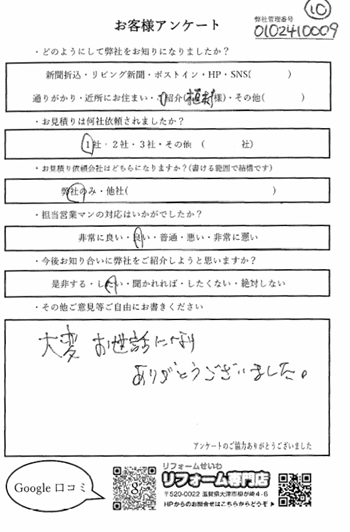 ⑩
お客様アンケート
弊社管理番号
0102410009
・どのようにして弊社をお知りになりましたか？
新聞折込・リビング新聞・ポストイン・HP・SNS(　　　)
通りがかり・近所にお住まい・ご紹介(　　様)・その他(　　　)
・お見積りは何社依頼されましたか？
1社・2社・3社・その他　(　　　社)
・お見積り依頼会社はどちらになりますか？(書ける範囲で結構です)
弊社のみ・他社(　　　)
・担当営業マンの対応はいかがでしたか？
非常に良い・良い・普通・悪い・非常に悪い
・今後お知り合いに弊社をご紹介しようと思いますか？
是非する・したい・聞かれれば・したくない・絶対しない
・その他ご意見等ご自由にお書きください
大変 お世話になり
ありがとうございました。
アンケートのご協力ありがとうございました
Google 口コミ
リフォームせいわ
リフォーム専門店
〒520-0022 滋賀県大津市柳が崎4-6
HPからのお問合せはこちらからどうぞ